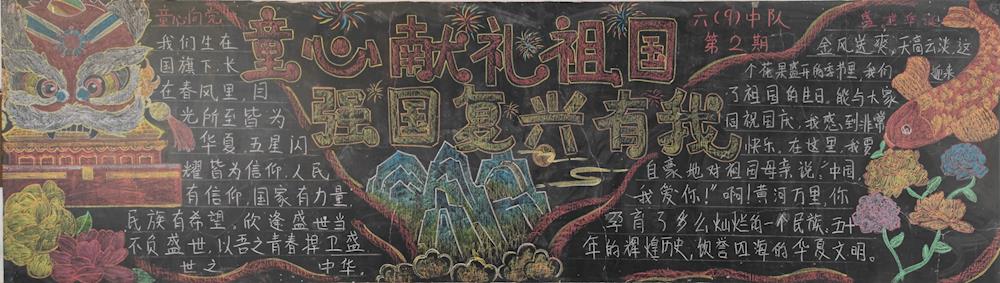 童心向党
我们生在
国旗下，长
在春风里，目
光所至皆为
华夏，五星闪
耀皆为信仰，人民
有信仰，国家有力量
民族有希望。欣逢盛世当
不负盛世，以吾之青春捍卫盛
世之 中华，
童心献礼祖国
强国复兴有我
六(9)中队
第2期
喜迎华诞
金风送爽，天高云淡，这
个花果盛开的季节里，我们 迎来
了祖国的生日，能与大家
同祝国庆，我感到非常
快乐，在这里，我要
自豪地对祖国母亲说：“中国
我爱你！”啊！黄河万里，你
孕育了多么灿烂的一个民族，五千
年的辉煌历史，饮誉四海的华夏文明。